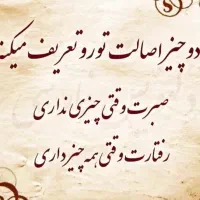 دو چیز اصالت تو رو تعریف میکنه
صبرت وقتی چیزی نداری
رفتارت وقتی همه چیز داری